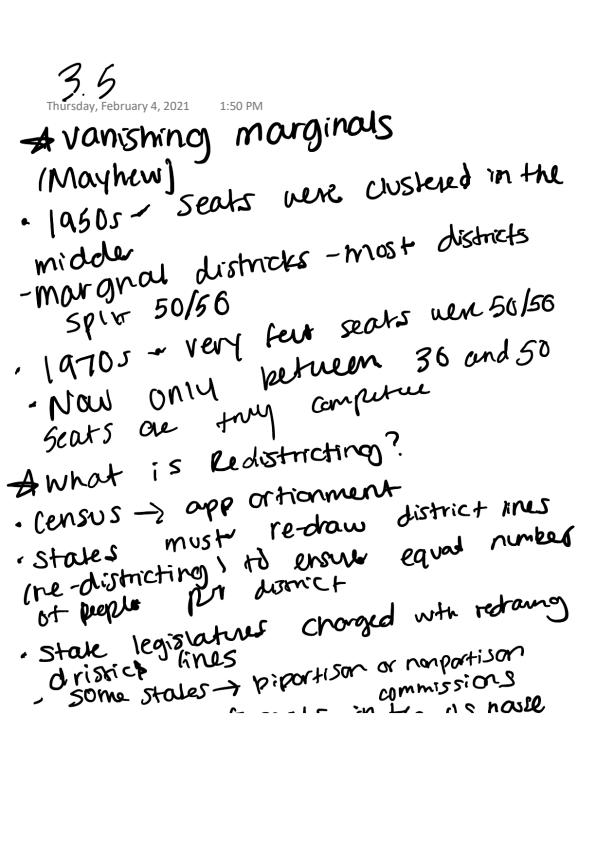 3.5
Thursday, February 4, 2021 1:50 PM
☆ vanishing marginals
(Mayhew)
• 1950s - seats were clustered in the
middle
- marginal districts - most districts
split 50/50
• 1970s - very few seats were 50/50
• Now only between 30 and 50
seats are truly competitive
☆ what is Redistricting?
• census → apportionment
• states must re-draw district lines
(re-districting) to ensure equal number
of people per district
• state legislatures charged with redrawing
district lines
- some states → bipartison or nonpartison
commissions
in house